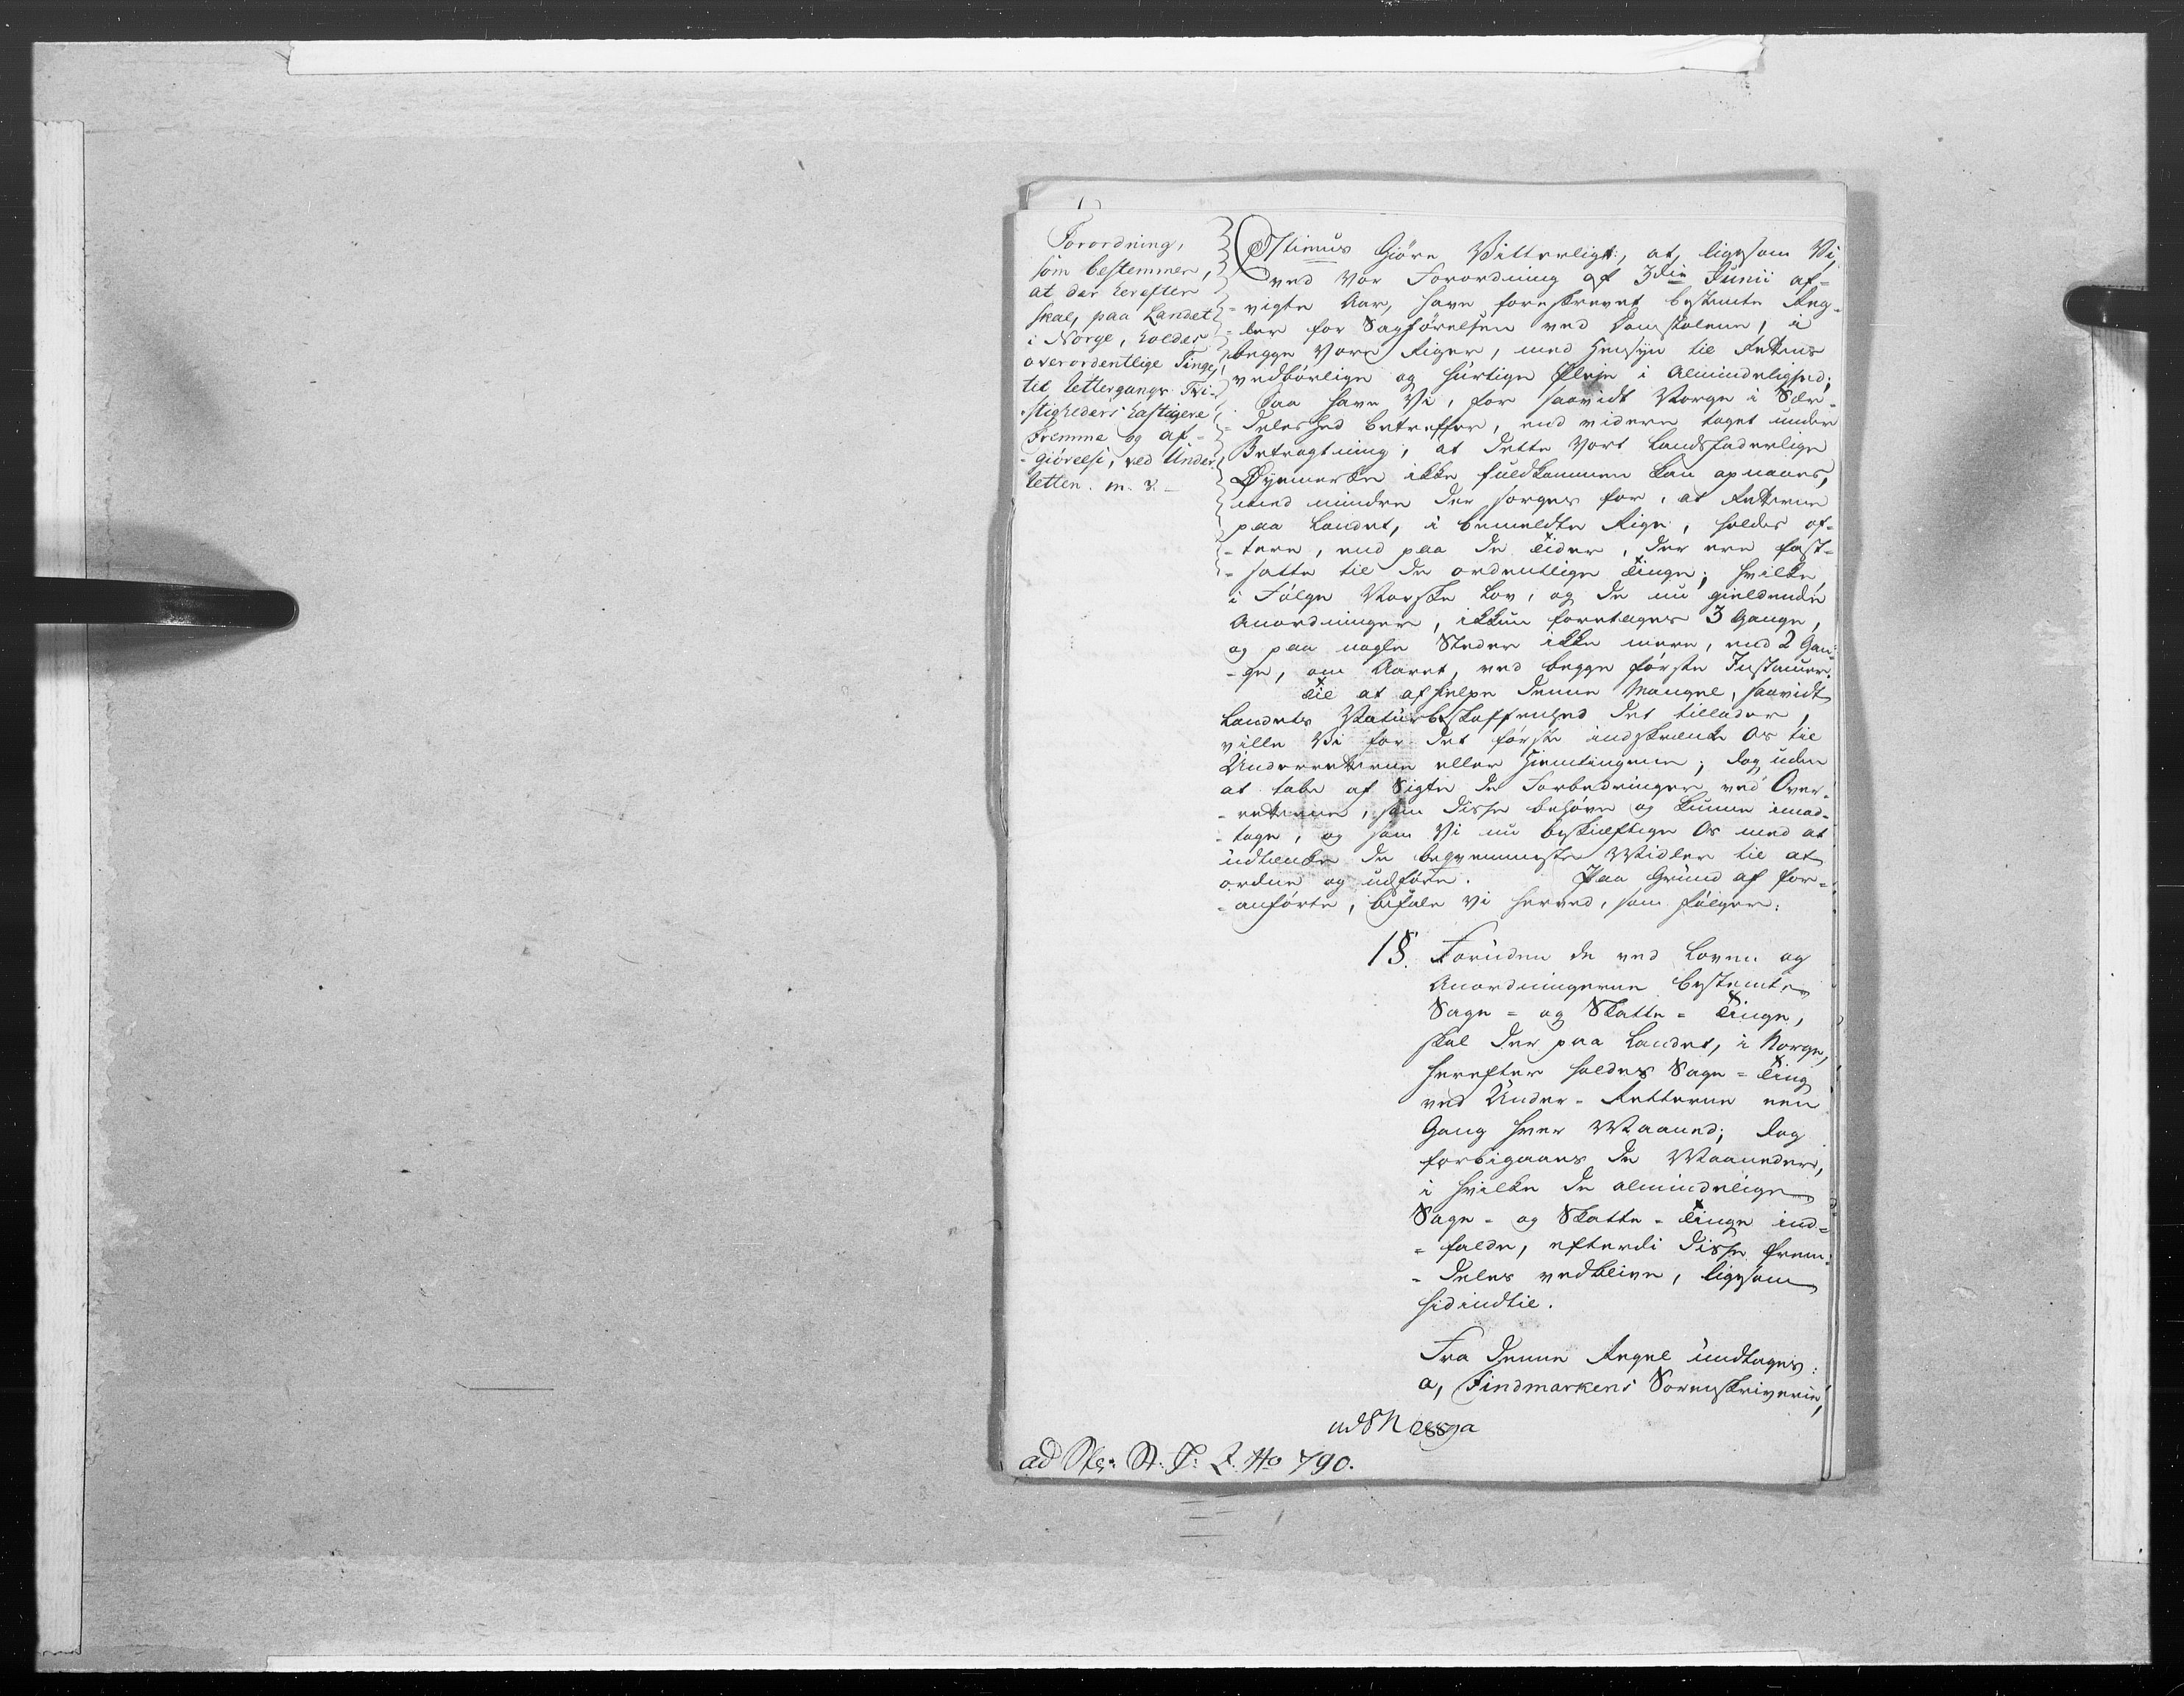 Forordning,
som bestemmer,
at der herefter
skal, paa Landet
i Norge, holdes
overordentlige Tinge,
til Rettergangs Tvi-
stigheders hastigere
Fremme og af-
-giörelse, ved Under
Retten. m. v.
Titimus Giöre Vitterligt:, at, ligesom Vi,
ved Vor Forordning af 3die Junii af-
-vigte Aar, have foreskrevet bestemte Reg-
-ler for Sagförelsen ved Domstolene, i
begge Vore Riger, med Hensyn til Rettens
vedbörlige og hurtige Pleje i Almindelighed;
Saa have Vi, for saavidt Norge i Sær-
-deleshed betreffer, end videre taget under
Betragtning, at dette Vort Landsfaderlige
Øyemerke ikke fuldkommen kan opnaaes,
med mindre der sørges for, at Retterne
paa Landet, i bemeldte Rige, holdes of-
-tere, end paa de Tider, der ere fast-
-satte til de ordentlige Tinge; hvilke,
i Følge Norske Lov, og de nu gieldende
Anordninger, ikkun foretages 3 Gange,
og paa nogle Steder ikke mere, end 2 Gan-
-ge, om Aaret, ved begge første Instancer.
Til at afhielpe denne Mangel, saavidt
Landets Naturbeskaffenhed det tillader,
ville Vi for det første indskrænke Os til
Underretterne eller Hiemtingene; dog uden
at tabe af Sigte de Forbedringer ved Over-
-retterne, som disse behøve og kunne imod-
-tage, og som Vi nu beskieftige Os med at
udtænke de beqvemmeste Midler til at
ordne og udføre. Paa Grund af for-
-anførte, befale Vi herved, som følger:
1 §. Foruden de ved Loven og
Anordningerne bestemte
Sage- og Skatte-Tinge,
skal der paa Landet, i Norge,
herefter holdes Sage-Ting
ved Under-Retterne een
Gang hver Maaned; dog
forbigaaes de Maaneder,
i hvilke de almindelige
Sage- og Skatte-Tinge ind-
-falde, efterdi disse frem-
-deles vedblive, ligesom
hidindtil.
Fra denne Regel undtages:
a, Findmarkens Sorenskriverie,
ad No 790.